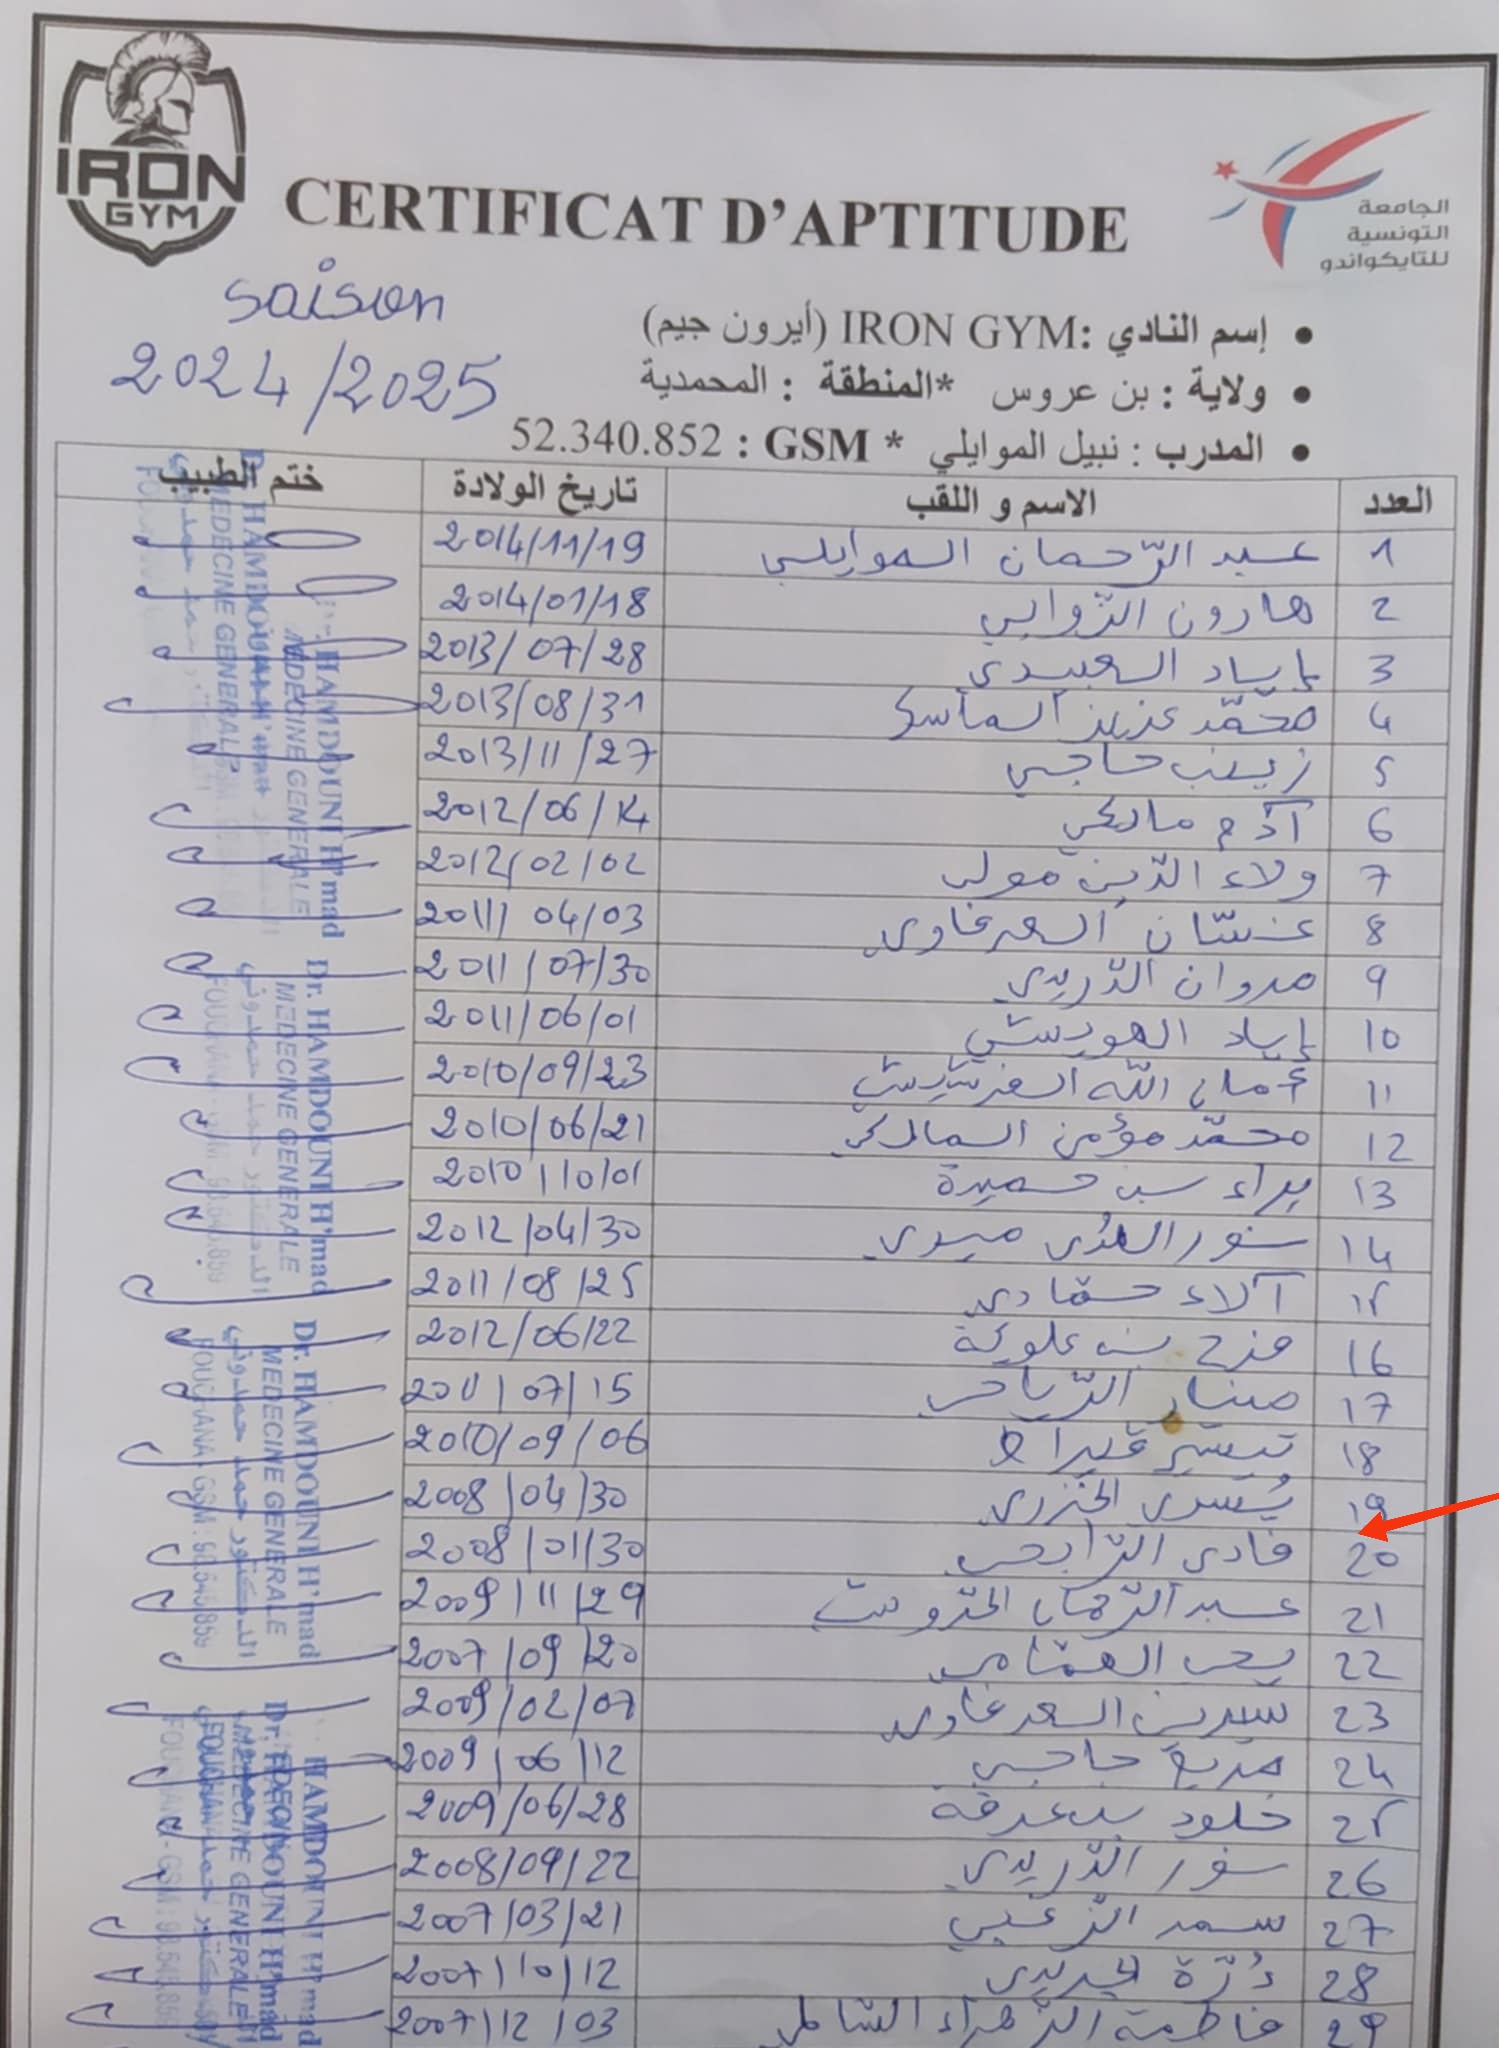 IRON
GYM
CERTIFICAT D'APTITUDE
الجامعة
التونسية
للتايكواندو
saison
2024/2025
• إسم النادي :IRON GYM (أيرون جيم)
• ولاية : بن عروس *المنطقة : المحمدية
• المدرب : نبيل الموايلي * GSM : 52.340.852
العدد الاسم و اللقب تاريخ الولادة ختم الطبيب
1 عبد الرّحمان الموايلي 2014/11/19
2 هارون الزوابي 2014/01/18
3 إياد العبيدي 2013/07/28
4 محمّد عزيز الماسكي 2013/08/31
5 زينب حاجي 2013/11/27
6 آدم مالكي 2012/06/14
7 ولاء الدّين مولى 2012/02/02
8 غسّان السعرغاوي 2011/04/03
9 مروان الدّريدي 2011/07/30
10 إياد الهويمشي 2011/06/01
11 أمان الله الفرشيشي 2010/09/23
12 محمّد مؤمن المالكي 2010/06/21
13 براء بن حميدة 2010/10/01
14 نور الهُدى ميدي 2012/04/30
15 آلاء حمّادي 2011/08/25
16 فرح بن علوية 2012/06/22
17 منار الرّياحي 2011/07/15
18 تيسير قيراط 2010/09/06
19 يُسرى الخنزري 2008/04/30
20 فادي الرّابحي 2008/01/30
21 عبد الرّحمان 2009/11/29
22 يحي العمّامي 2007/09/20
23 سيرين السعرغاوي 2009/02/07
24 مريم حاجي 2009/06/12
25 خلود بن عرفة 2009/06/28
26 نور الدّريدي 2008/09/22
27 سمر الزّغبي 2007/03/21
28 دُرّة الجريدي 2007/10/12
29 فاطمة الزّهراء الشّاملي 2007/12/03
Dr. HAMDOUNI H'mad
MEDECINE GENERALE
الدكتور حمد حمدوني
FOUCHANA - GSM : 98.545.859